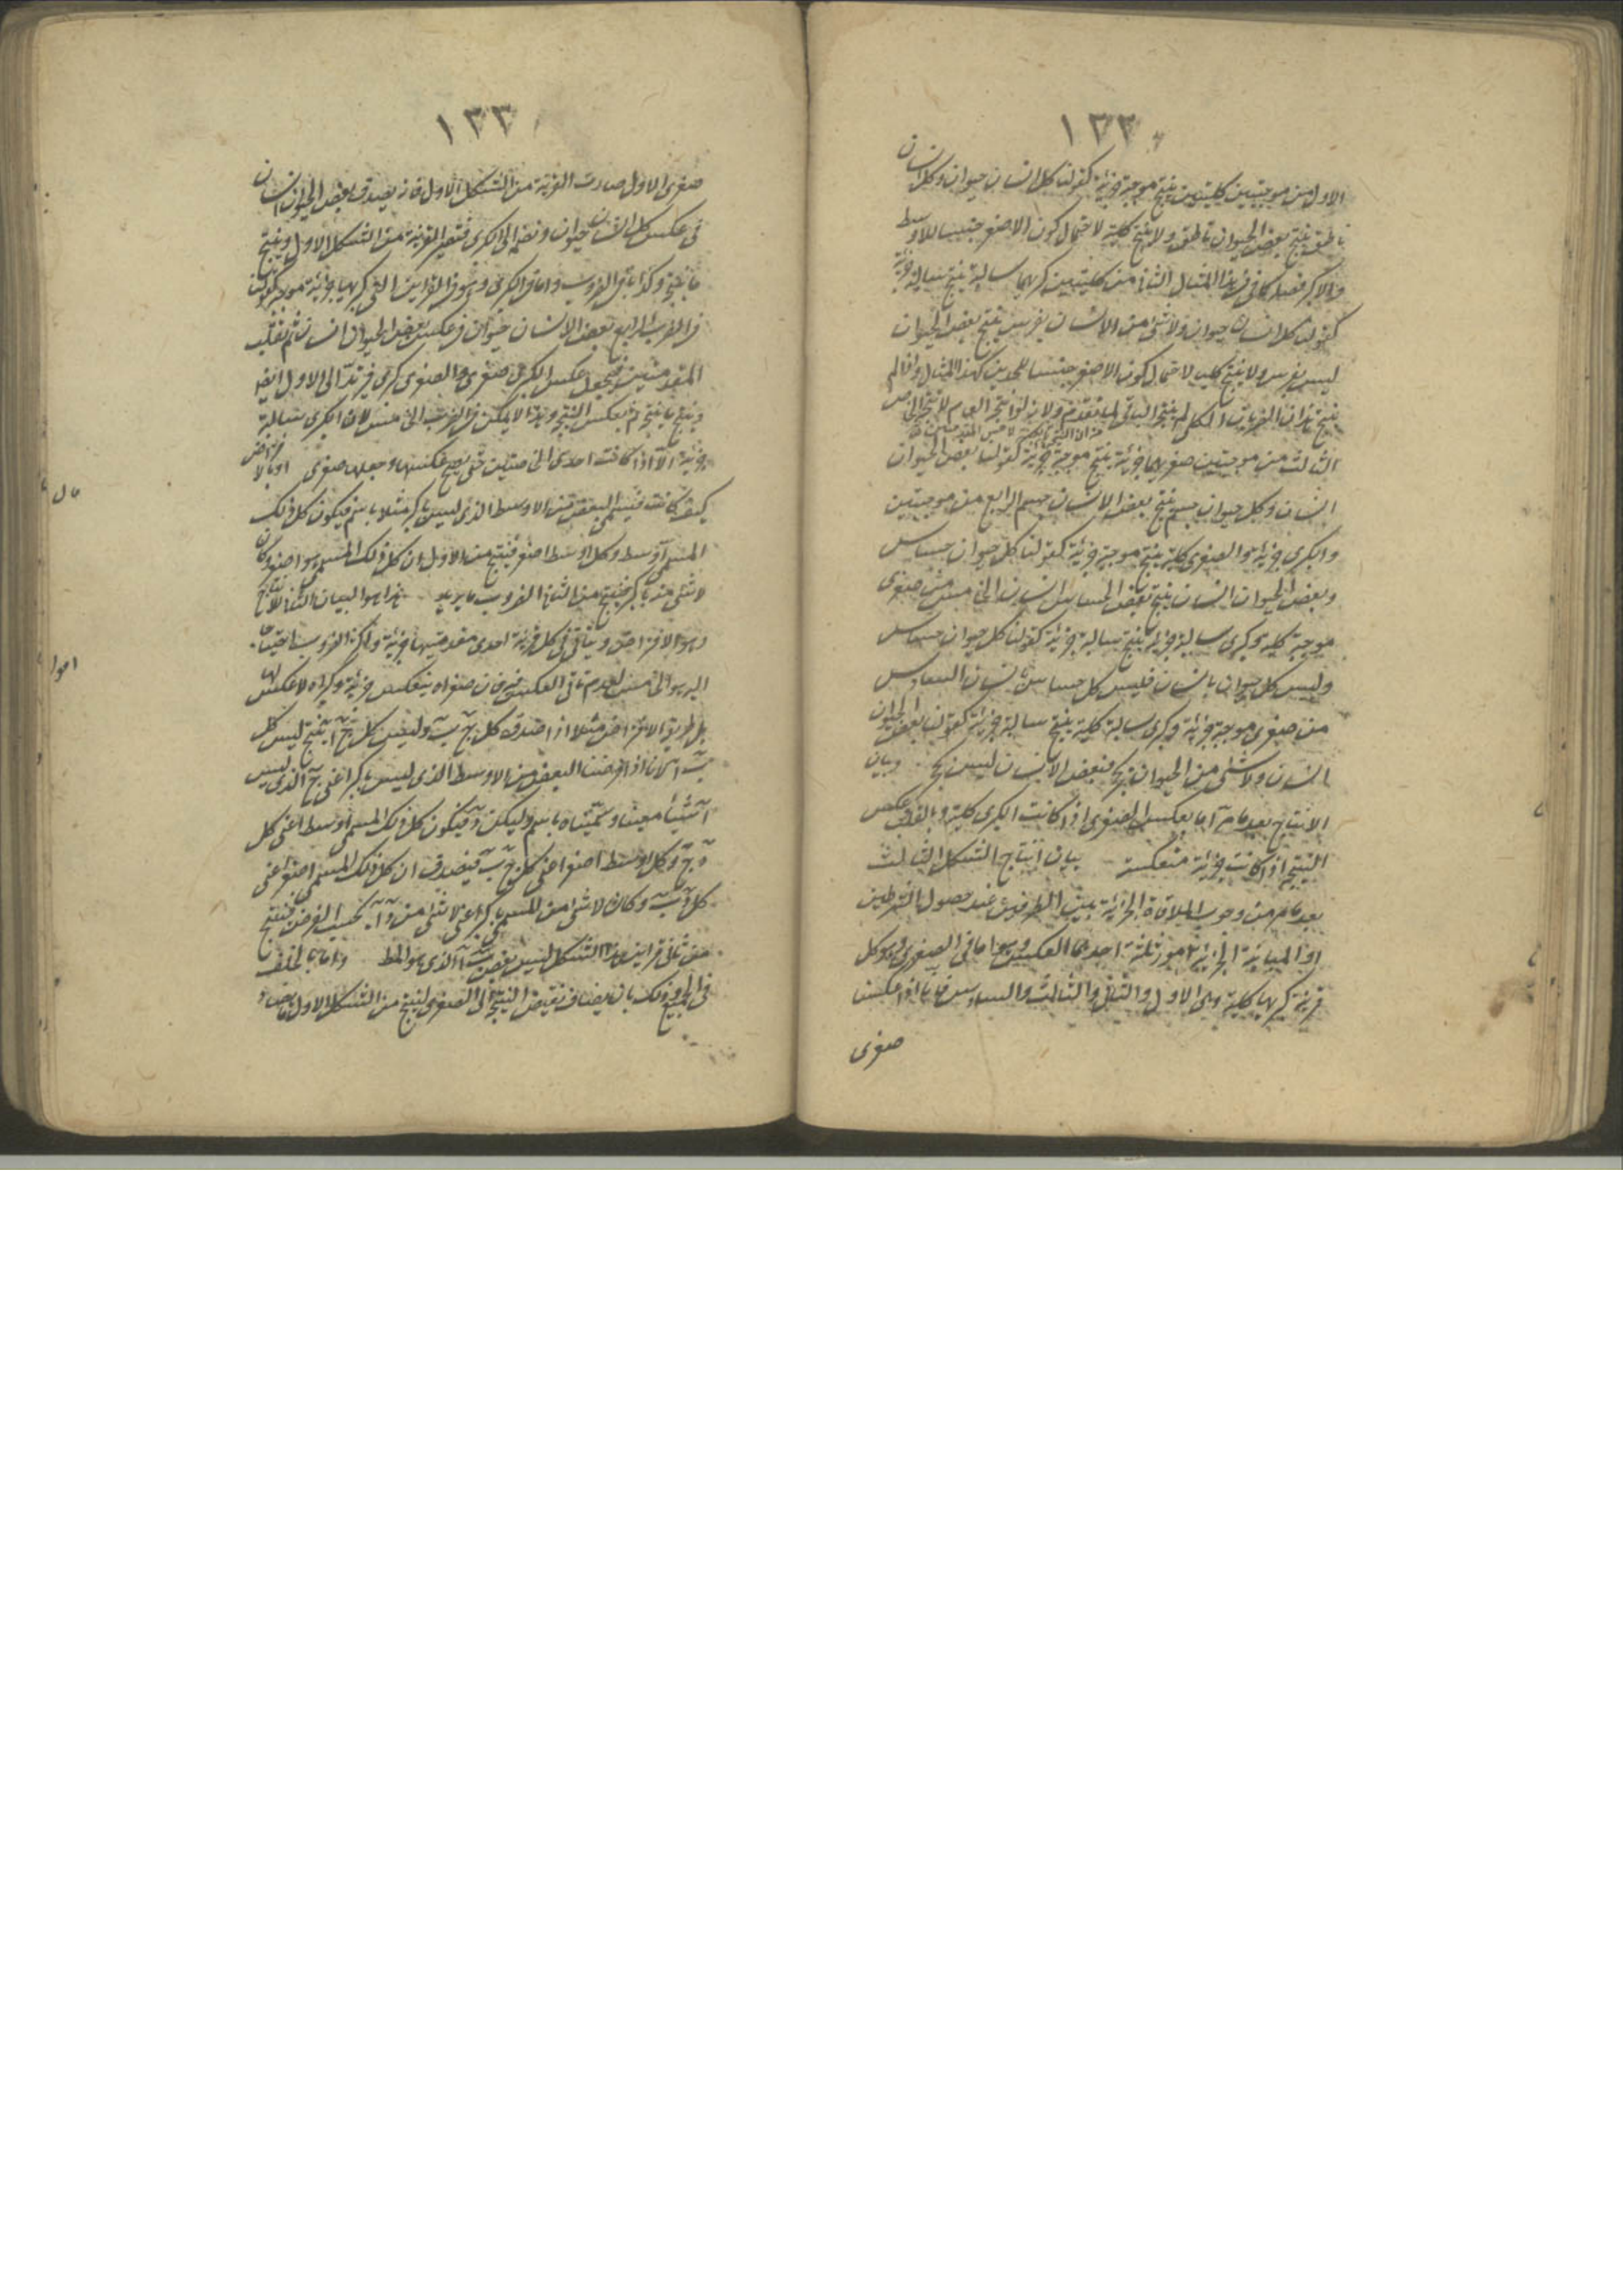 ١٣٢
الاول من موجبتين كليتين ينتج موجبة جزئية كقولنا كل انسان حيوان وكل انسان
ناطق ينتج بعض الحيوان ناطق ولا ينتج كلية لاحتمال كون الاصغر جنسا للاوسط
والاكبر فصلا كما في هذا المثال الثاني من كليتين كبريهما سالبة ينتج سالبة جزئية
كقولنا كل انسان حيوان ولا شئ من الانسان بفرس ينتج بعض الحيوان
ليس بفرس ولا ينتج كليا لاحتمال كون الاصغر جنسا للحدين كهذا المثال واذا لم
ينتج هذان الضربان الكلي لم ينتج البواقي لما تقدم ولانه لو انتج العام لانتج الخاص
الثالث من موجبتين صغريهما جزئية ينتج موجبة جزئية كقولنا بعض الحيوان
انسان وكل حيوان جسم ينتج بعض الانسان جسم الرابع من موجبتين
والكبرى جزئية والصغرى كلية ينتج موجبة جزئية كقولنا كل حيوان حساس
وبعض الحيوان انسان ينتج بعض الحساس انسان الخامس من صغرى
موجبة كلية وكبرى سالبة جزئية ينتج سالبة جزئية كقولنا كل حيوان حساس
وليس كل حيوان بانسان فليس كل حساس بانسان السادس
من صغرى موجبة جزئية وكبرى سالبة كلية ينتج سالبة جزئية كقولنا بعض الحيوان
انسان ولا شئ من الحيوان بحجر فبعض الانسان ليس بحجر وبيان
الانتاج بعد ما مر اما بعكس الصغرى اذا كانت الكبرى كلية وبالقلب وعكس
النتيجة اذا كانت جزئية منعكسة بيان انتاج الشكل الثالث
بعد ما مر من وجوب الملاقاة الجزئية بين الطرفين عند حصول الشرطين
او المباينة الجزئية امور ثلثة احدها العكس وهو اما في الصغرى وهو كل
قرينة كبريها كلية وهي الاول والثاني والثالث والسادس فانا اذا عكسنا
صغرى
١٣٣
صغرى الاول صارت القرينة من الشكل الاول فانه يصدق بعض الحيوان انسان
في عكس كل انسان حيوان ونضمه الى الكبرى فتصير القرينة من الشكل الاول وينتج
ما ينتج وكذا باقي الضروب واما في الكبرى وهو في القرائن التي كبريها جزئية موجبة كقولنا
في الضرب الرابع بعض الانسان حيوان فعكسه بعض الحيوان انسان ثم تقلب
المقدمتين فيجعل عكس الكبرى صغرى والصغرى كبرى فيرتد الى الاول ايضا
وينتج ما ينتج ثم يعكس النتيجة وهذا لا يمكن في الضرب الخامس لان الكبرى سالبة
جزئية الا اذا كانت احدى الخاصتين حتى يصح عكسها وجعلها صغرى او بالافتراض
كيف كانت فيسمى البعض من الاوسط الذي ليس باكبر مثلا باسم فيكون كل ذلك
المسمى اوسط وكل اوسط اصغر فينتج من الاول ان كل ذلك المسمى هو اصغر وكان
لا شئ منه باكبر فينتج من الثاني الضروب ما يريد هذا هو البيان الثاني للانتاج
وهو الافتراض ويتأتى في كل قرينة احدى مقدمتيها جزئية
بل طريق الافتراض مثلا اذا صدق كل ج ب وليس كل ج ا ينتج ليس كل
ب ا لانا اذا فرضنا البعض من الاوسط الذي ليس باكبر اعني ج الذي ليس
ا شيئا معينا وسميناه باسم وليكن د فيكون كل ذلك المسمى اوسط اعني كل
د ج وكل اوسط اصغر اعني كل ج ب فيصدق ان كل ذلك المسمى اصغر اعني
كل د ب وكان لا شئ من المسمى باكبر اعني لا شئ من د ا بحسب الفرض فينتج
من ثاني قرائن هذا الشكل ليس بعض ب ا الذي هو المط واما بالخلف
في الجميع وذلك بان يضاف نقيض النتيجة الى الصغرى لينتج من الشكل الاول